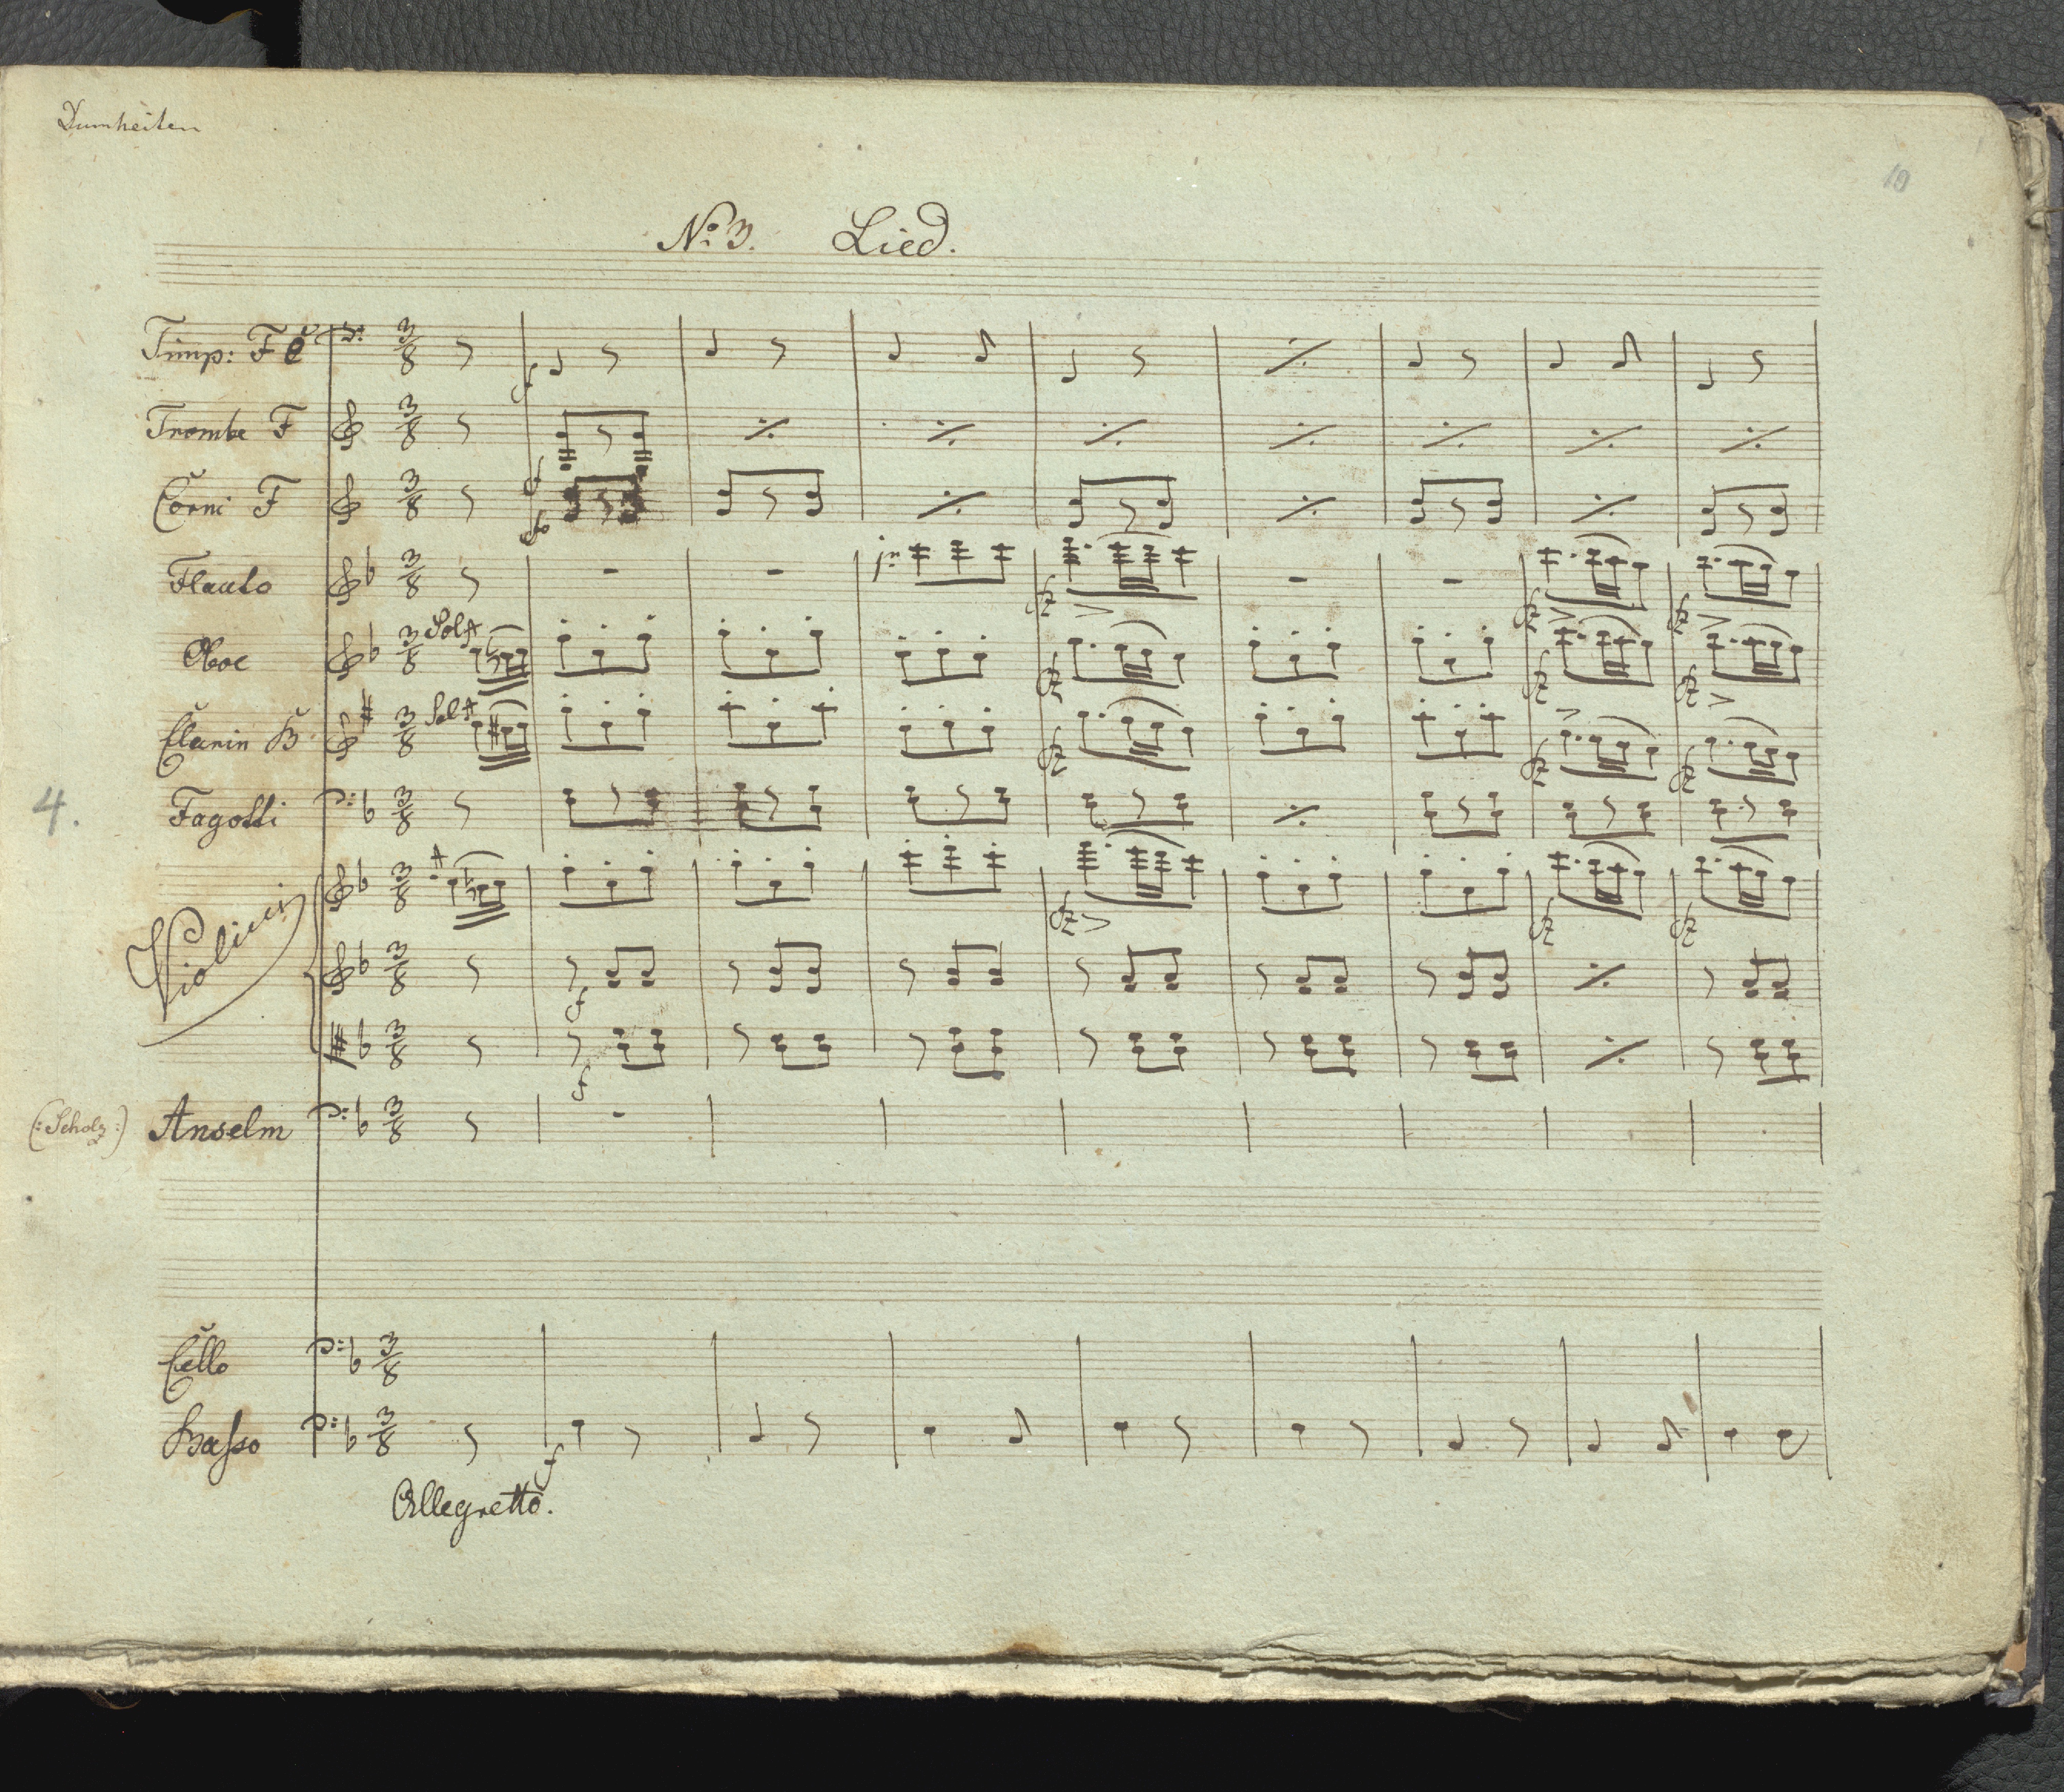 Dumheiten
10
No. 3. Lied.
Timp: F C
Trombe F
Corni F
Flauto
Oboe Solo
Clarin B Solo
4. Fagotti
Violini
(: Scholz :) Anselm
Cello
Basso
Allegretto.